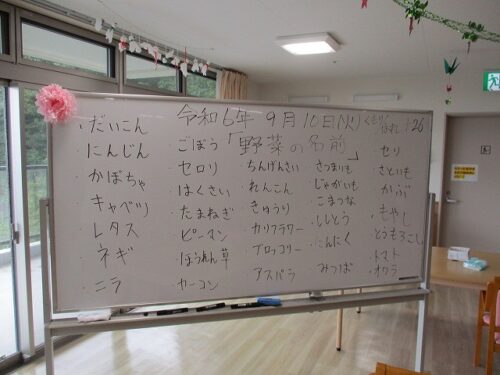 令和6年 9月10日(火) くもり はれ 26
「野菜の名前」
・だいこん
・にんじん
・かぼちゃ
・キャベツ
・レタス
・ネギ
・ニラ
・ごぼう
・セロリ
・はくさい
・たまねぎ
・ピーマン
・ほうれん草
・ヤーコン
・ちんげんさい
・れんこん
・きゅうり
・カリフラワー
・ブロッコリー
・アスパラ
・さつまいも
・じゃがいも
・こまつな
・ししとう
・にんにく
・みつば
・セリ
・さといも
・かぶ
・もやし
・とうもろこし
・トマト
・オクラ